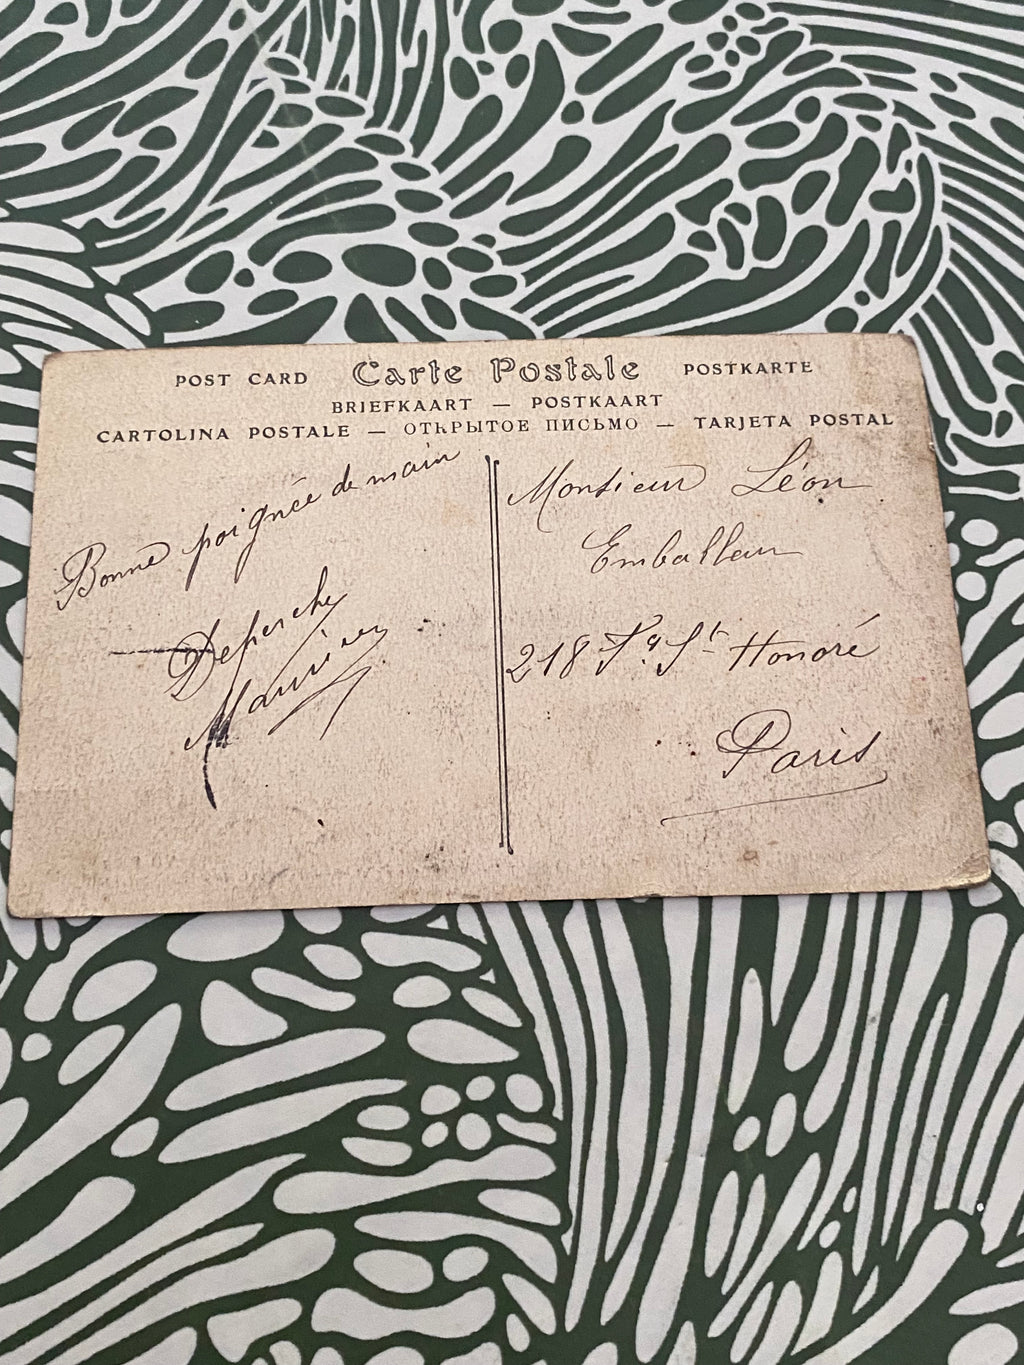 POST CARD Carte Postale POSTKARTE
BRIEFKAART — POSTKAART
CARTOLINA POSTALE — ОТКРЫТОЕ ПИСЬМО — TARJETA POSTAL
Bonne poignée de main
Maurice
Monsieur Léon
Emballeur
218 Fg St Honoré
Paris